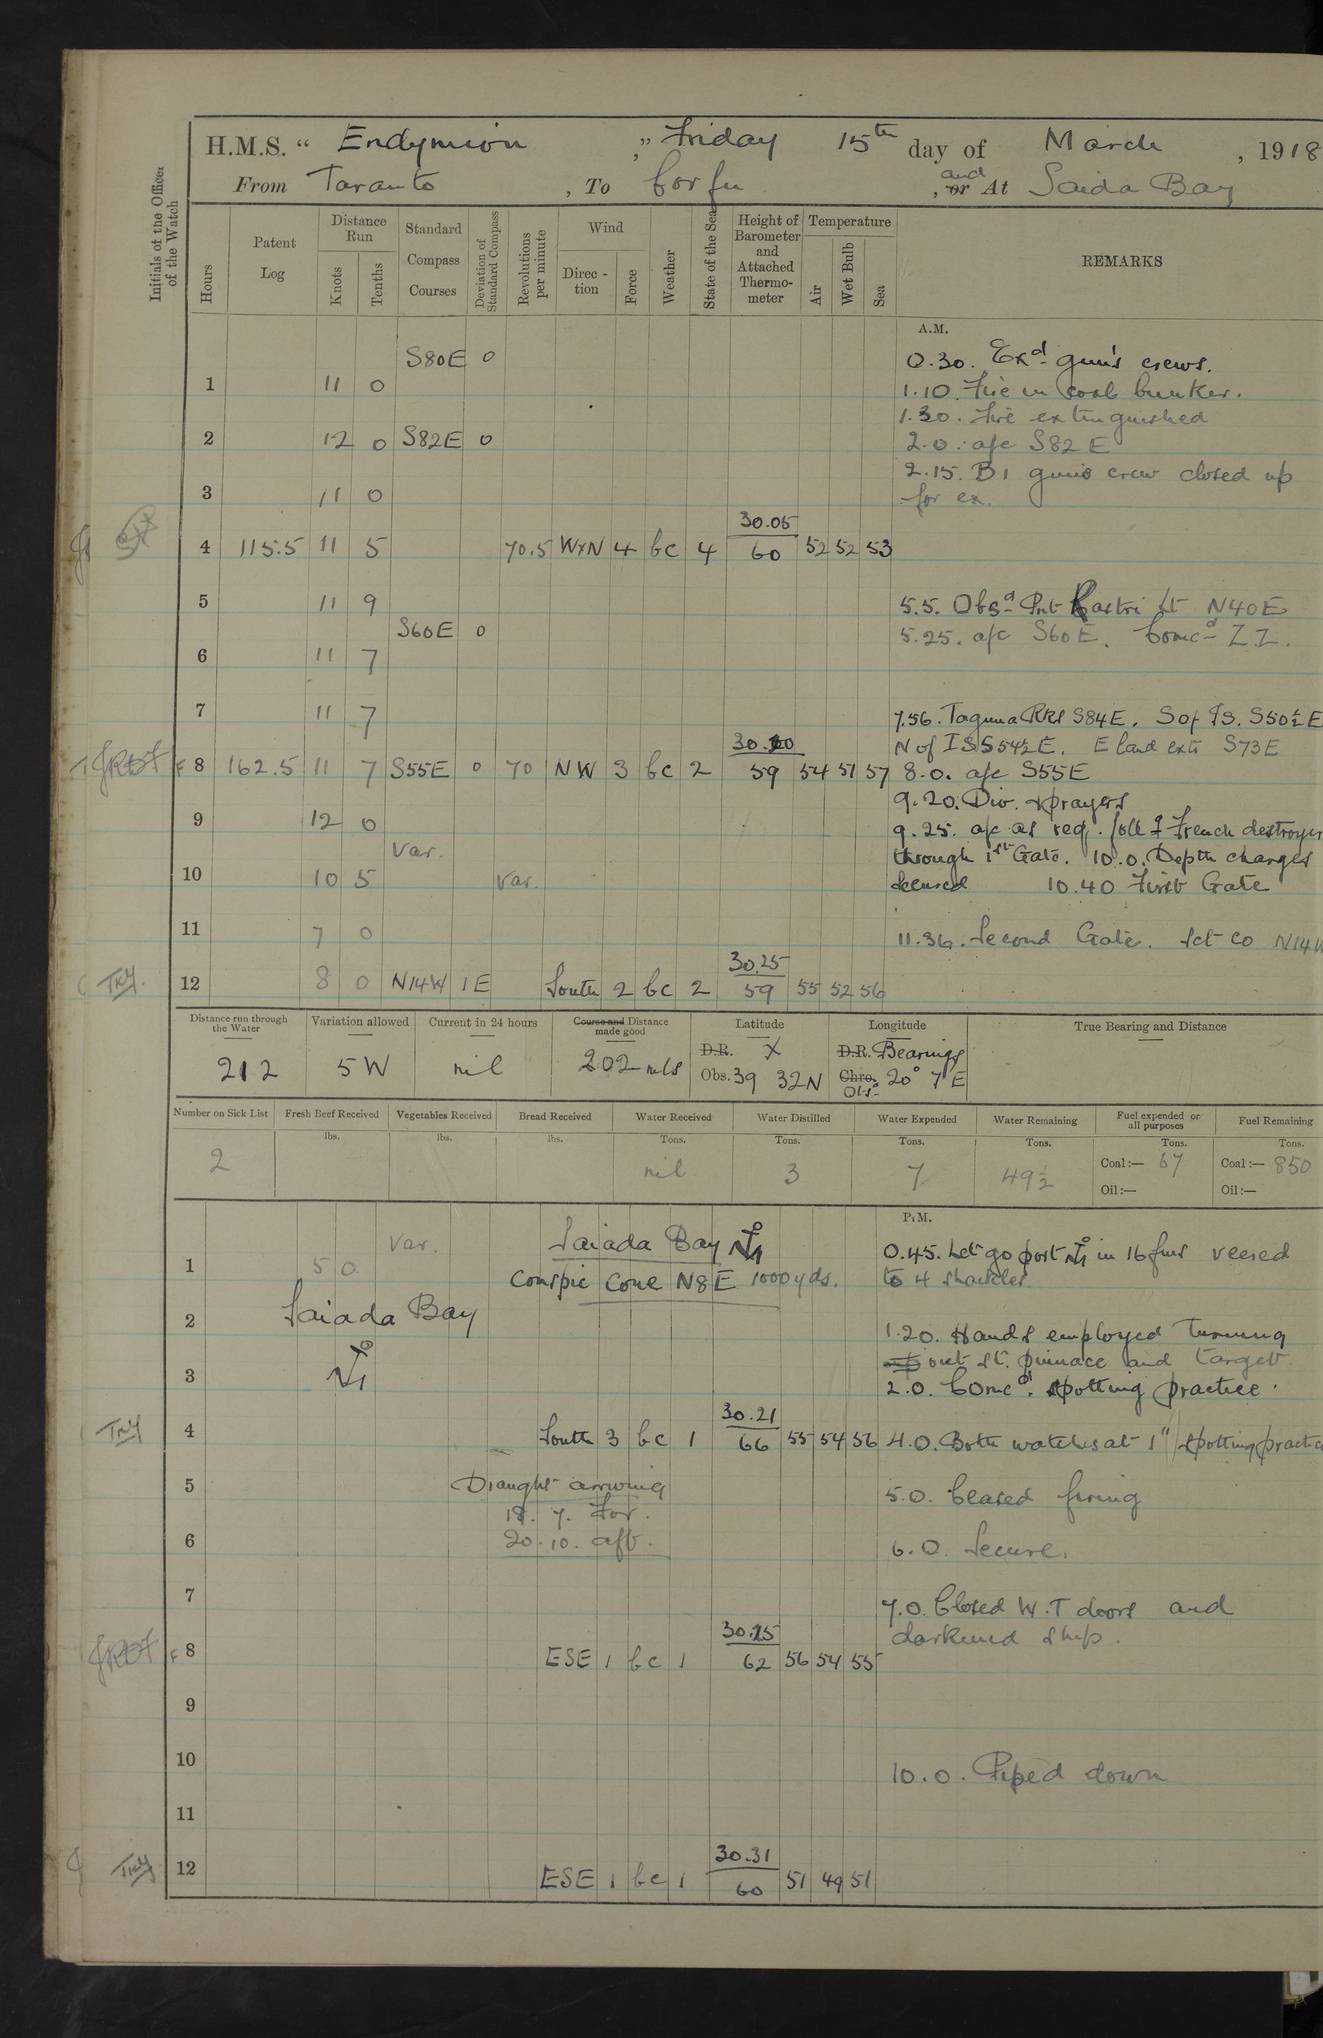 H.M.S. “ Endymion ,” Friday 15th day of March , 1918
From Taranto , To Corfu , or and At Saida Bay
Initials of the Officer of the Watch
Hours
Patent Log
Distance Run
Knots
Tenths
Standard Compass Courses
Deviation of Standard Compass
Revolutions per minute
Wind
Direc-tion
Force
Weather
State of the Sea
Height of Barometer and Attached Thermo-meter
Temperature
Air
Wet Bulb
Sea
REMARKS
A.M.
S80E 0 0.30. Exd gun's crews.
1 11 0 1.10. Fire in coal bunker.
1.30. Fire extinguished
2 12 0 S82E 0 2.0. a/c S82E
2.15. B1 guns crew closed up
3 11 0 for ex.
30.05
4 115.5 11 5 70.5 WxN 4 bc 4 60 52 52 53
5 11 9 5.5. Obsd Pnt Castri Lt N40E
S60E 0 5.25. a/c S60E. Comcd ZZ.
6 11 7
7 11 7 7.56. Tagnua Rks S84E. S of Is. S50½E
30.20 N of IS S54½E. E land extr S73E
8 162.5 11 7 S55E 0 70 NW 3 bc 2 59 54 51 57 8.0. a/c S55E
9.20. Div. & prayers
9 12 0 9.25. a/c as req. foll g French destroyer
Var. through 1st Gate. 10.0. Depth charges
10 10 5 Var. secured 10.40 First Gate
11 7 0 11.36. Second Gate. Set co N14W
30.25
12 8 0 N14W 1E South 2 bc 2 59 55 52 56
Distance run through the Water
212
Variation allowed
5 W
Current in 24 hours
nil
Course and Distance made good
202 mls
Latitude
D.R. X
Obs. 39 32N
Longitude
D.R. Bearings
Chro. Obsd 20° 7'E
True Bearing and Distance
Number on Sick List
2
Fresh Beef Received
lbs.
Vegetables Received
lbs.
Bread Received
lbs.
Water Received
Tons.
nil
Water Distilled
Tons.
3
Water Expended
Tons.
7
Water Remaining
Tons.
49½
Fuel expended or all purposes
Tons.
Coal:— 67
Oil:—
Fuel Remaining
Tons.
Coal:— 850
Oil:—
P.M.
Var. Saiada Bay
1 5 0 0.45. Let go port in 16 fms veered
Conspic Cone N8E 1000 yds. to 4 shackles
2 Saiada Bay
1.20. Hands employed turning
out st. pinnace and target.
3 2.0. Comcd. spotting practice.
30.21
4 South 3 bc 1 66 55 54 56 4.0. Both watches at 1" spotting practice
5 Draught arriving 5.0. Ceased firing
18. 7. For.
6 20. 10. aft. 6.0. Secure.
7 7.0. Closed W.T doors and
30.25 darkened ship.
8 ESE 1 bc 1 62 56 54 55
9
10 10.0. Piped down
11
30.31
12 ESE 1 bc 1 60 51 49 51